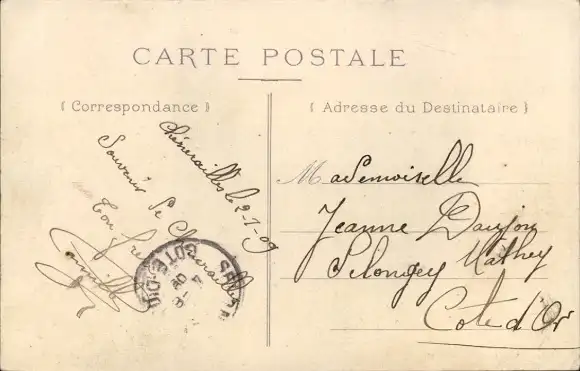 CARTE POSTALE
( Correspondance )
( Adresse du Destinataire )
Chénerailles le 2-1-09
Souvenir de Chénerailles
Ton
Camille
Mademoiselle
Jeanne Daujon
Selongey Mathey
Côte d'Or
COTE-D'OR